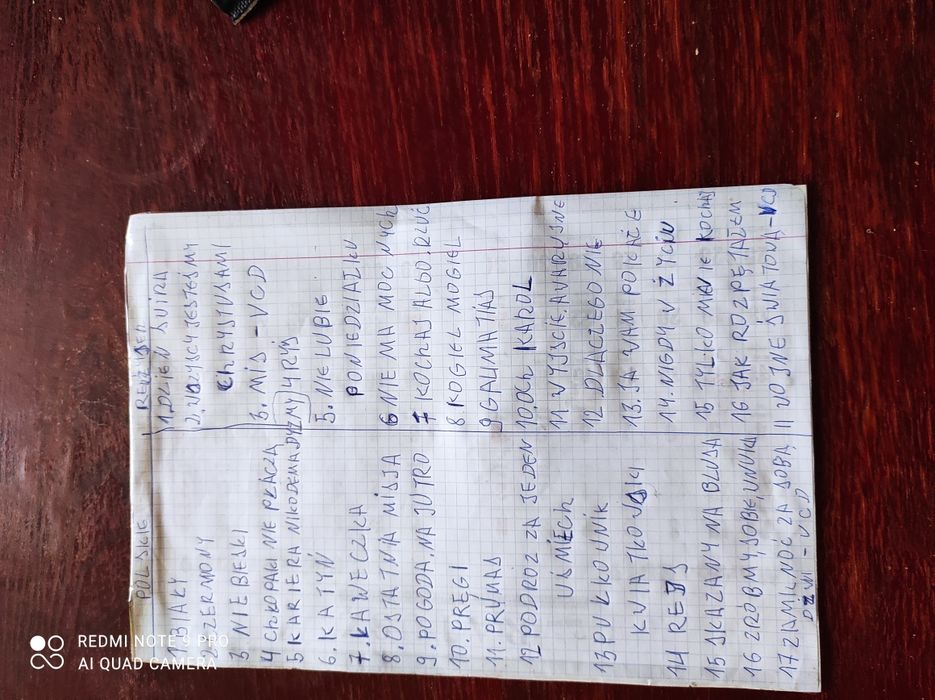 POLSKIE
1. BIAŁY
2. SZERMONY
3. NIEBESKI
4 CHŁOPAKI NIE PŁACZĄ
5 KARIERA NIKODEMA DYZMY
6. KATYŃ
7. ŁAWECZKA
8. OSTATNIA MISJA
9. POGODA.NA JUTRO
10. PRĘGI
11. PRYMAS
12 PODROZ ZA JEDEN
USMIECH
13 PUŁKOWNIK
KWIATKOWSKI
14 REJS
15 SKAZANY NA BLUSA
16 ZRÓBMY SOBIE, WNUKA
17 ZAMKNOC ZA SOBĄ
DZWI - VCD
1. DZIEN SWIRA
2. WSZYSCY JESTEŚMY
CHRYSTUSAMI
3. MIS - VCD
4 RYŚ
5. NIE LUBIE
PONIEDZIAŁKU
6 NIE MA MOCNYCH
7 KOCHAJ ALBO.RZUĆ
8. KOGIEL MOGIEL
9 GALIMATIAS
10. Och KAROL
11 WYJSCIE, AWARYJNE
12 DLACZEGO NIE
13. JA WAM POKAŻE
14. NIGDY W ŻYCIU
15 TYLKO MNIE KOCHAJ
16 JAK ROZPĘTAŁEM
II WOJNE ŚWIATOWĄ - VCD
REDMI NOTE 9 PRO
AI QUAD CAMERA